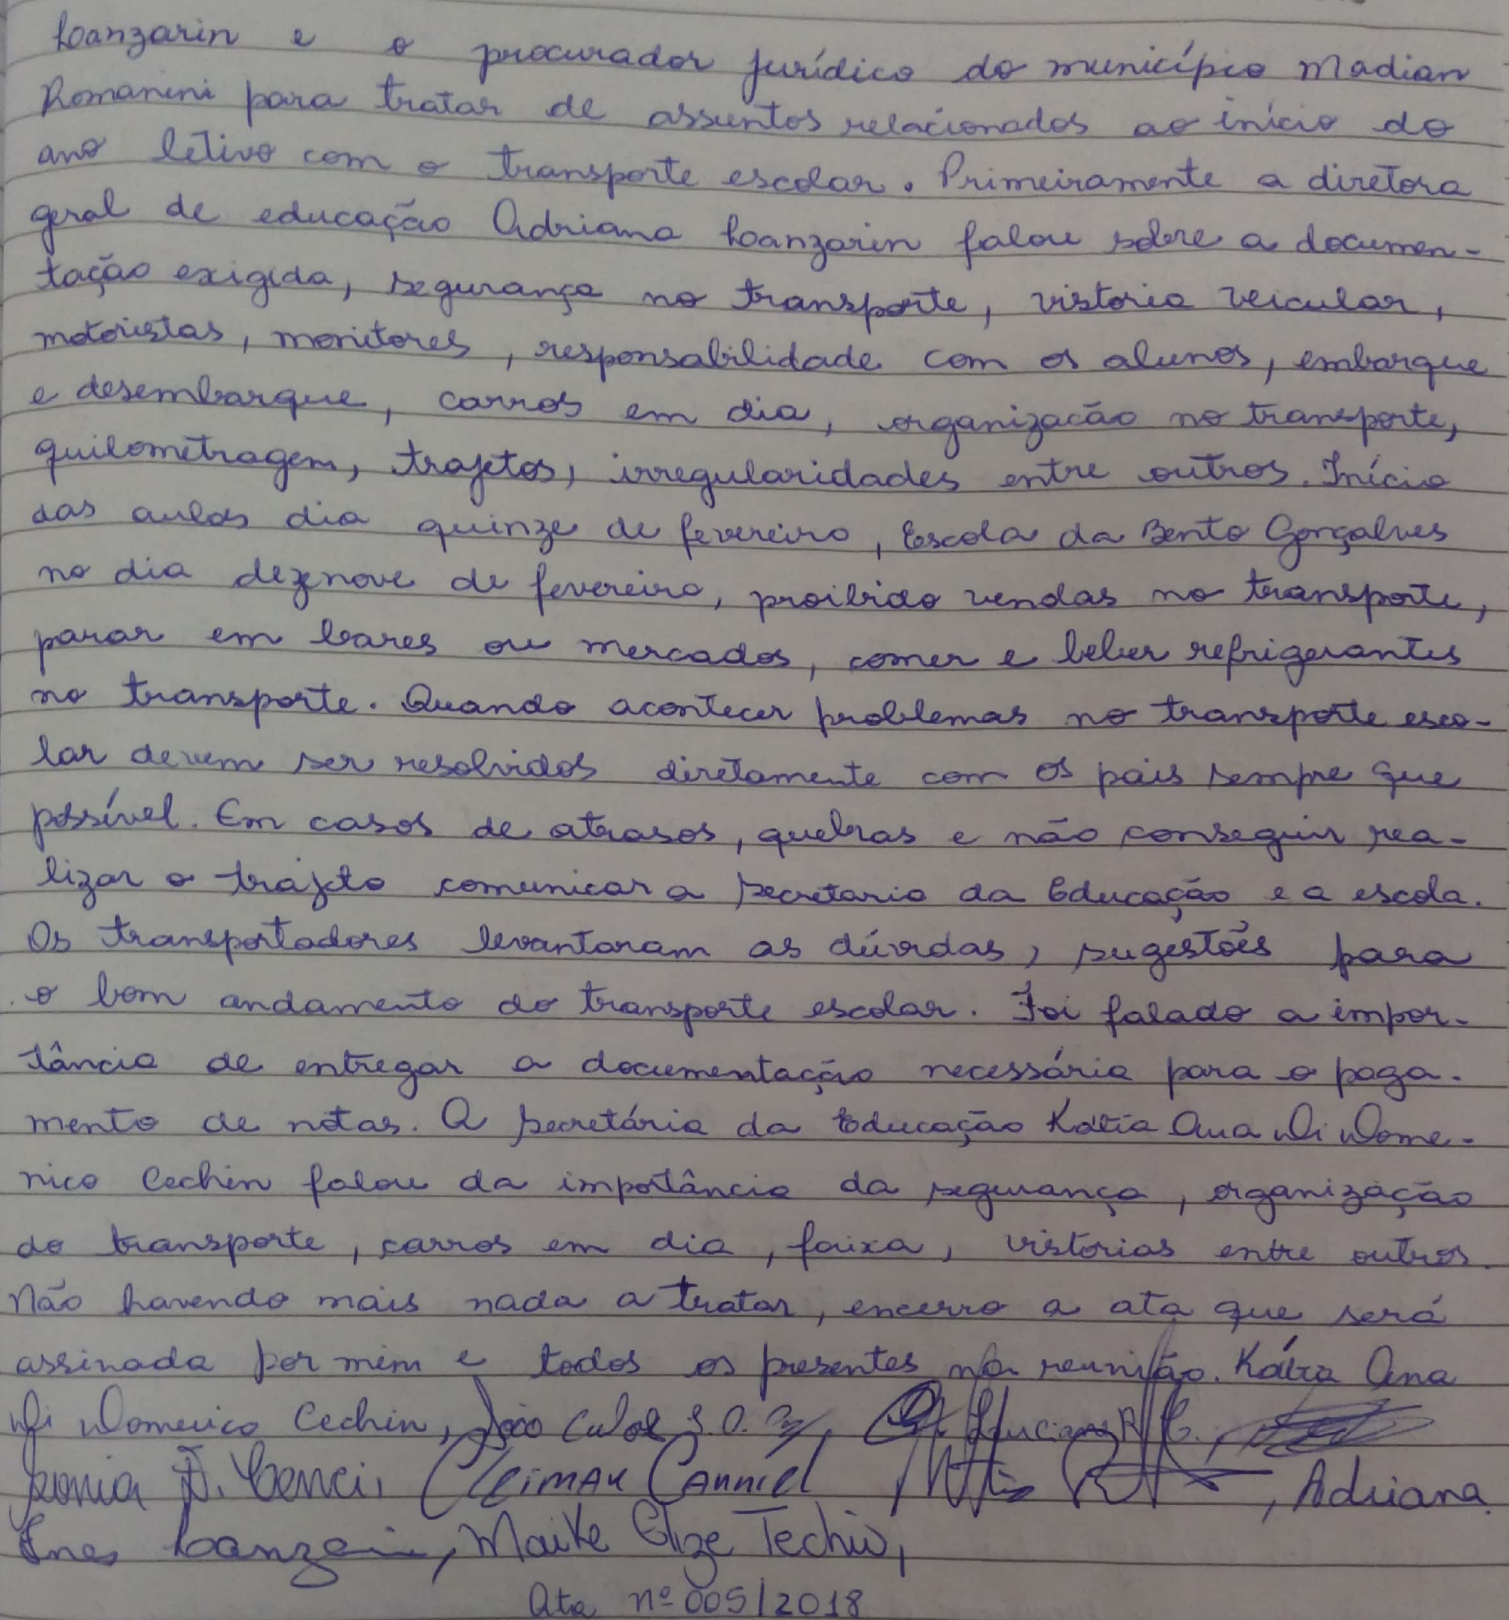 Loanzarin e o procurador jurídico do município Madian
Romanini para tratar de assuntos relacionados ao início do
ano letivo com o transporte escolar. Primeiramente a diretora
geral de educação Adriana Loanzarin falou sobre a documen-
tação exigida, segurança no transporte, vistoria veicular,
motoristas, monitores, responsabilidade com os alunos, embarque
e desembarque, carros em dia, organizacão no transporte,
quilometragem, trajetos, irregularidades entre outros. Início
das aulas dia quinze de fevereiro, Escola da Bento Gonçalves
no dia dezenove de fevereiro, proibido vendas no transporte,
parar em bares ou mercados, comer e beber refrigerantes
no transporte. Quando acontecer problemas no transporte esco-
lar devem ser resolvidos diretamente com os pais sempre que
possível. Em casos de atrasos, quebras e não conseguir rea-
lizar o trajeto comunicar a secretaria da Educação e a escola.
Os transportadores levantaram as dúvidas, sugestões para
o bom andamento do transporte escolar. Foi falado a impor-
tância de entregar a documentação necessária para o paga-
mento de notas. A secretária da Educação Katia Ana Di Dome-
nico Cechin falou da importância da segurança, organização
do transporte, carros em dia, faixa, vistorias entre outros.
Não havendo mais nada a tratar, encerro a ata que será
assinada por mim e todos os presentes na reunião. Kátia Ana
Di Domenico Cechin, João
Adriana
Ines Maike Elize Techio,
Ata nº 005/2018